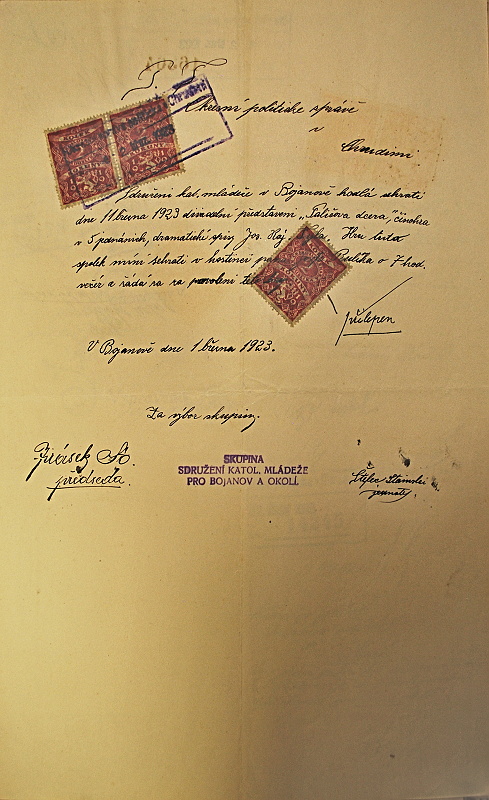 Okresní politické správě
v
Chrudimi
Sdružení kat. mládeže v Bojanově hodlá sehráti
dne 11. března 1923 divadelní představení „Paličova dcera," činohra
v 5 jednáních, dramatické spisy Jos. Káj. Tyla. Hru tuto
spolek míní sehráti v hostinci Paulíka o 7 hod.
večer a žádá za povolení
přilepen
V Bojanově dne 1. března 1923.
Za výbor skupiny.
Jirásek
předseda.
SKUPINA
SDRUŽENÍ KATOL. MLÁDEŽE
PRO BOJANOV A OKOLÍ.
jednatel